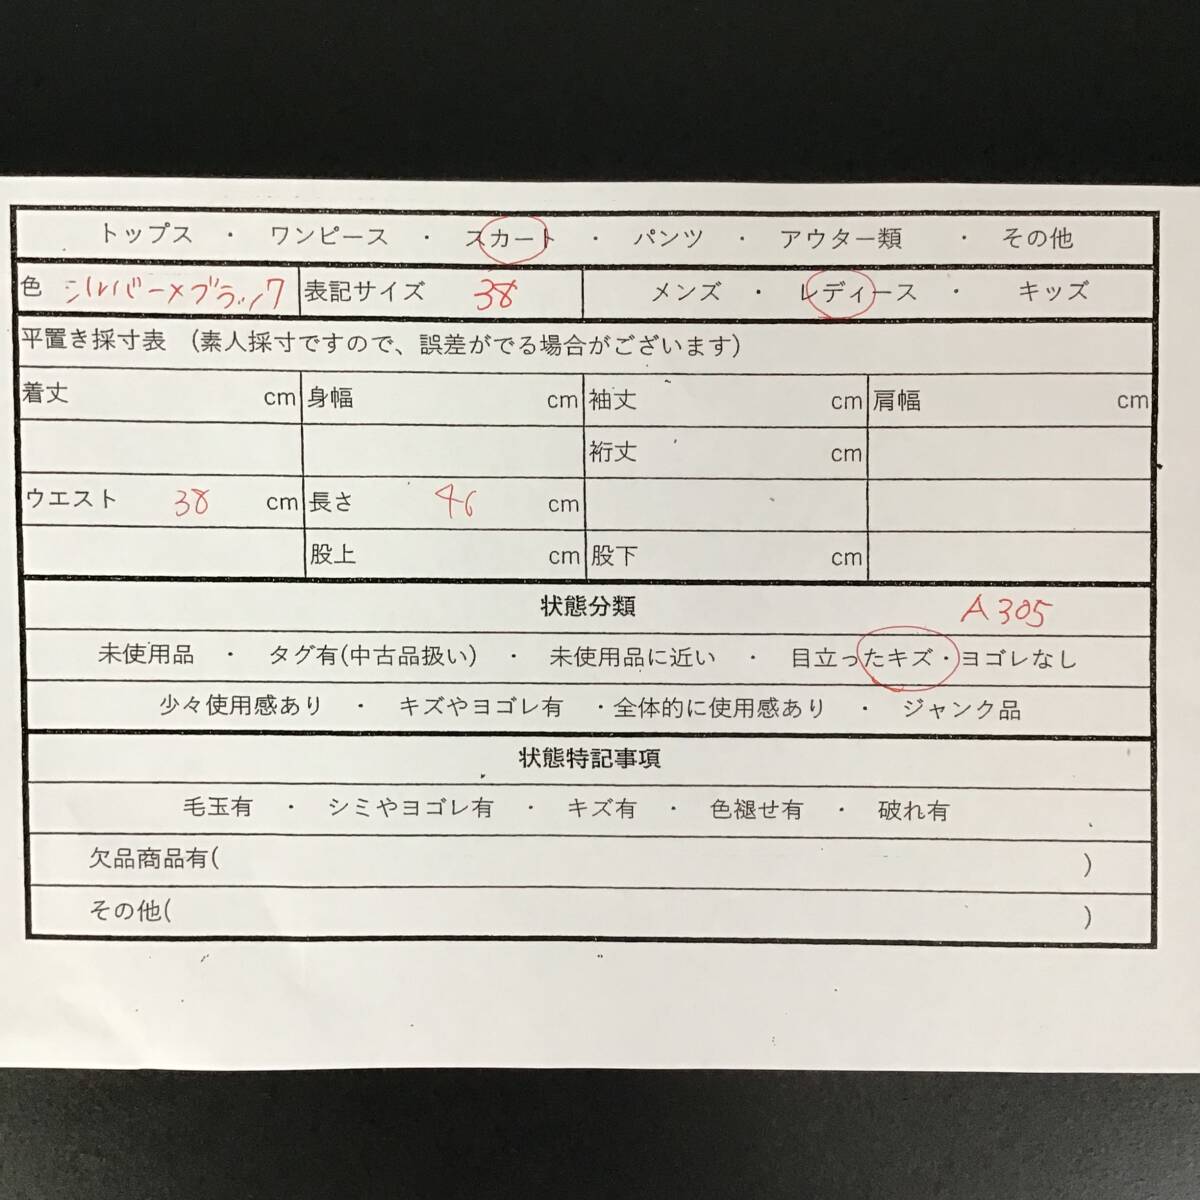 トップス ・ ワンピース ・ スカート ・ パンツ ・ アウター類 ・ その他
色 シルバー×ブラック 表記サイズ 38 メンズ ・ レディース ・ キッズ
平置き採寸表 (素人採寸ですので、誤差がでる場合がございます)
着丈 cm 身幅 cm 袖丈 cm 肩幅 cm
裄丈 cm
ウエスト 38 cm 長さ 46 cm
股上 cm 股下 cm
状態分類 A305
未使用品 ・ タグ有(中古品扱い) ・ 未使用品に近い ・ 目立ったキズ・ヨゴレなし
少々使用感あり ・ キズやヨゴレ有 ・全体的に使用感あり ・ ジャンク品
状態特記事項
毛玉有 ・ シミやヨゴレ有 ・ キズ有 ・ 色褪せ有 ・ 破れ有
欠品商品有( )
その他( )